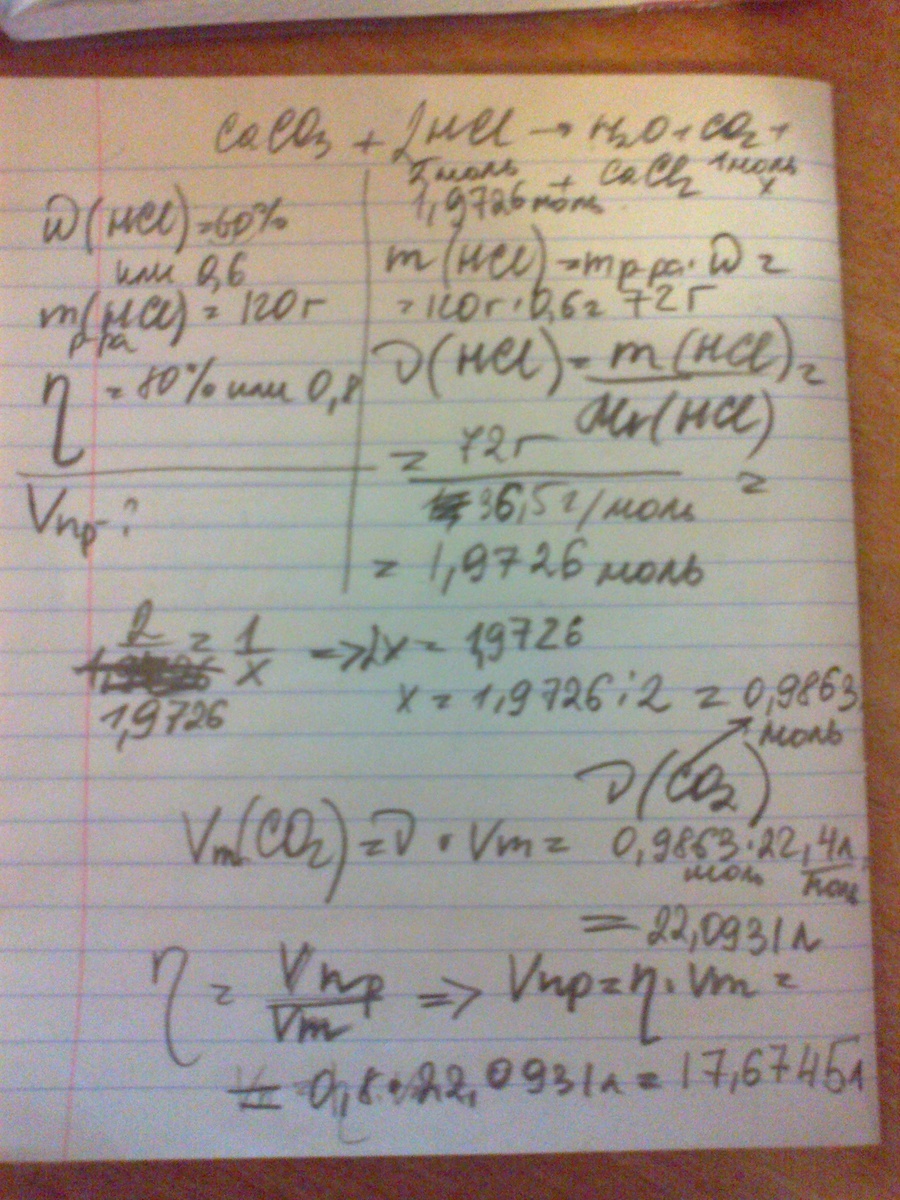 CaCO3 + 2HCl → H2O + CO2 +
2 моль 1 моль
+ CaCl2 x
1,9726 моль
W(HCl) = 60%
или 0,6
m(HCl) = 120г
р-ра
η = 80% или 0,8
Vпр-?
m(HCl) = mр-ра · W =
= 120г · 0,6 = 72г
ν(HCl) = m(HCl) / Mr(HCl) =
= 72г / 36,5г/моль =
= 1,9726 моль
2 / 1,9726 = 1 / x => 2x = 1,9726
x = 1,9726 : 2 = 0,9863
моль
ν(CO2)
Vm(CO2) = ν · Vm = 0,9863 · 22,4л
моль моль
= 22,0931л
η = Vпр / Vm => Vпр = η · Vm =
= 0,8 · 22,0931л = 17,6745л